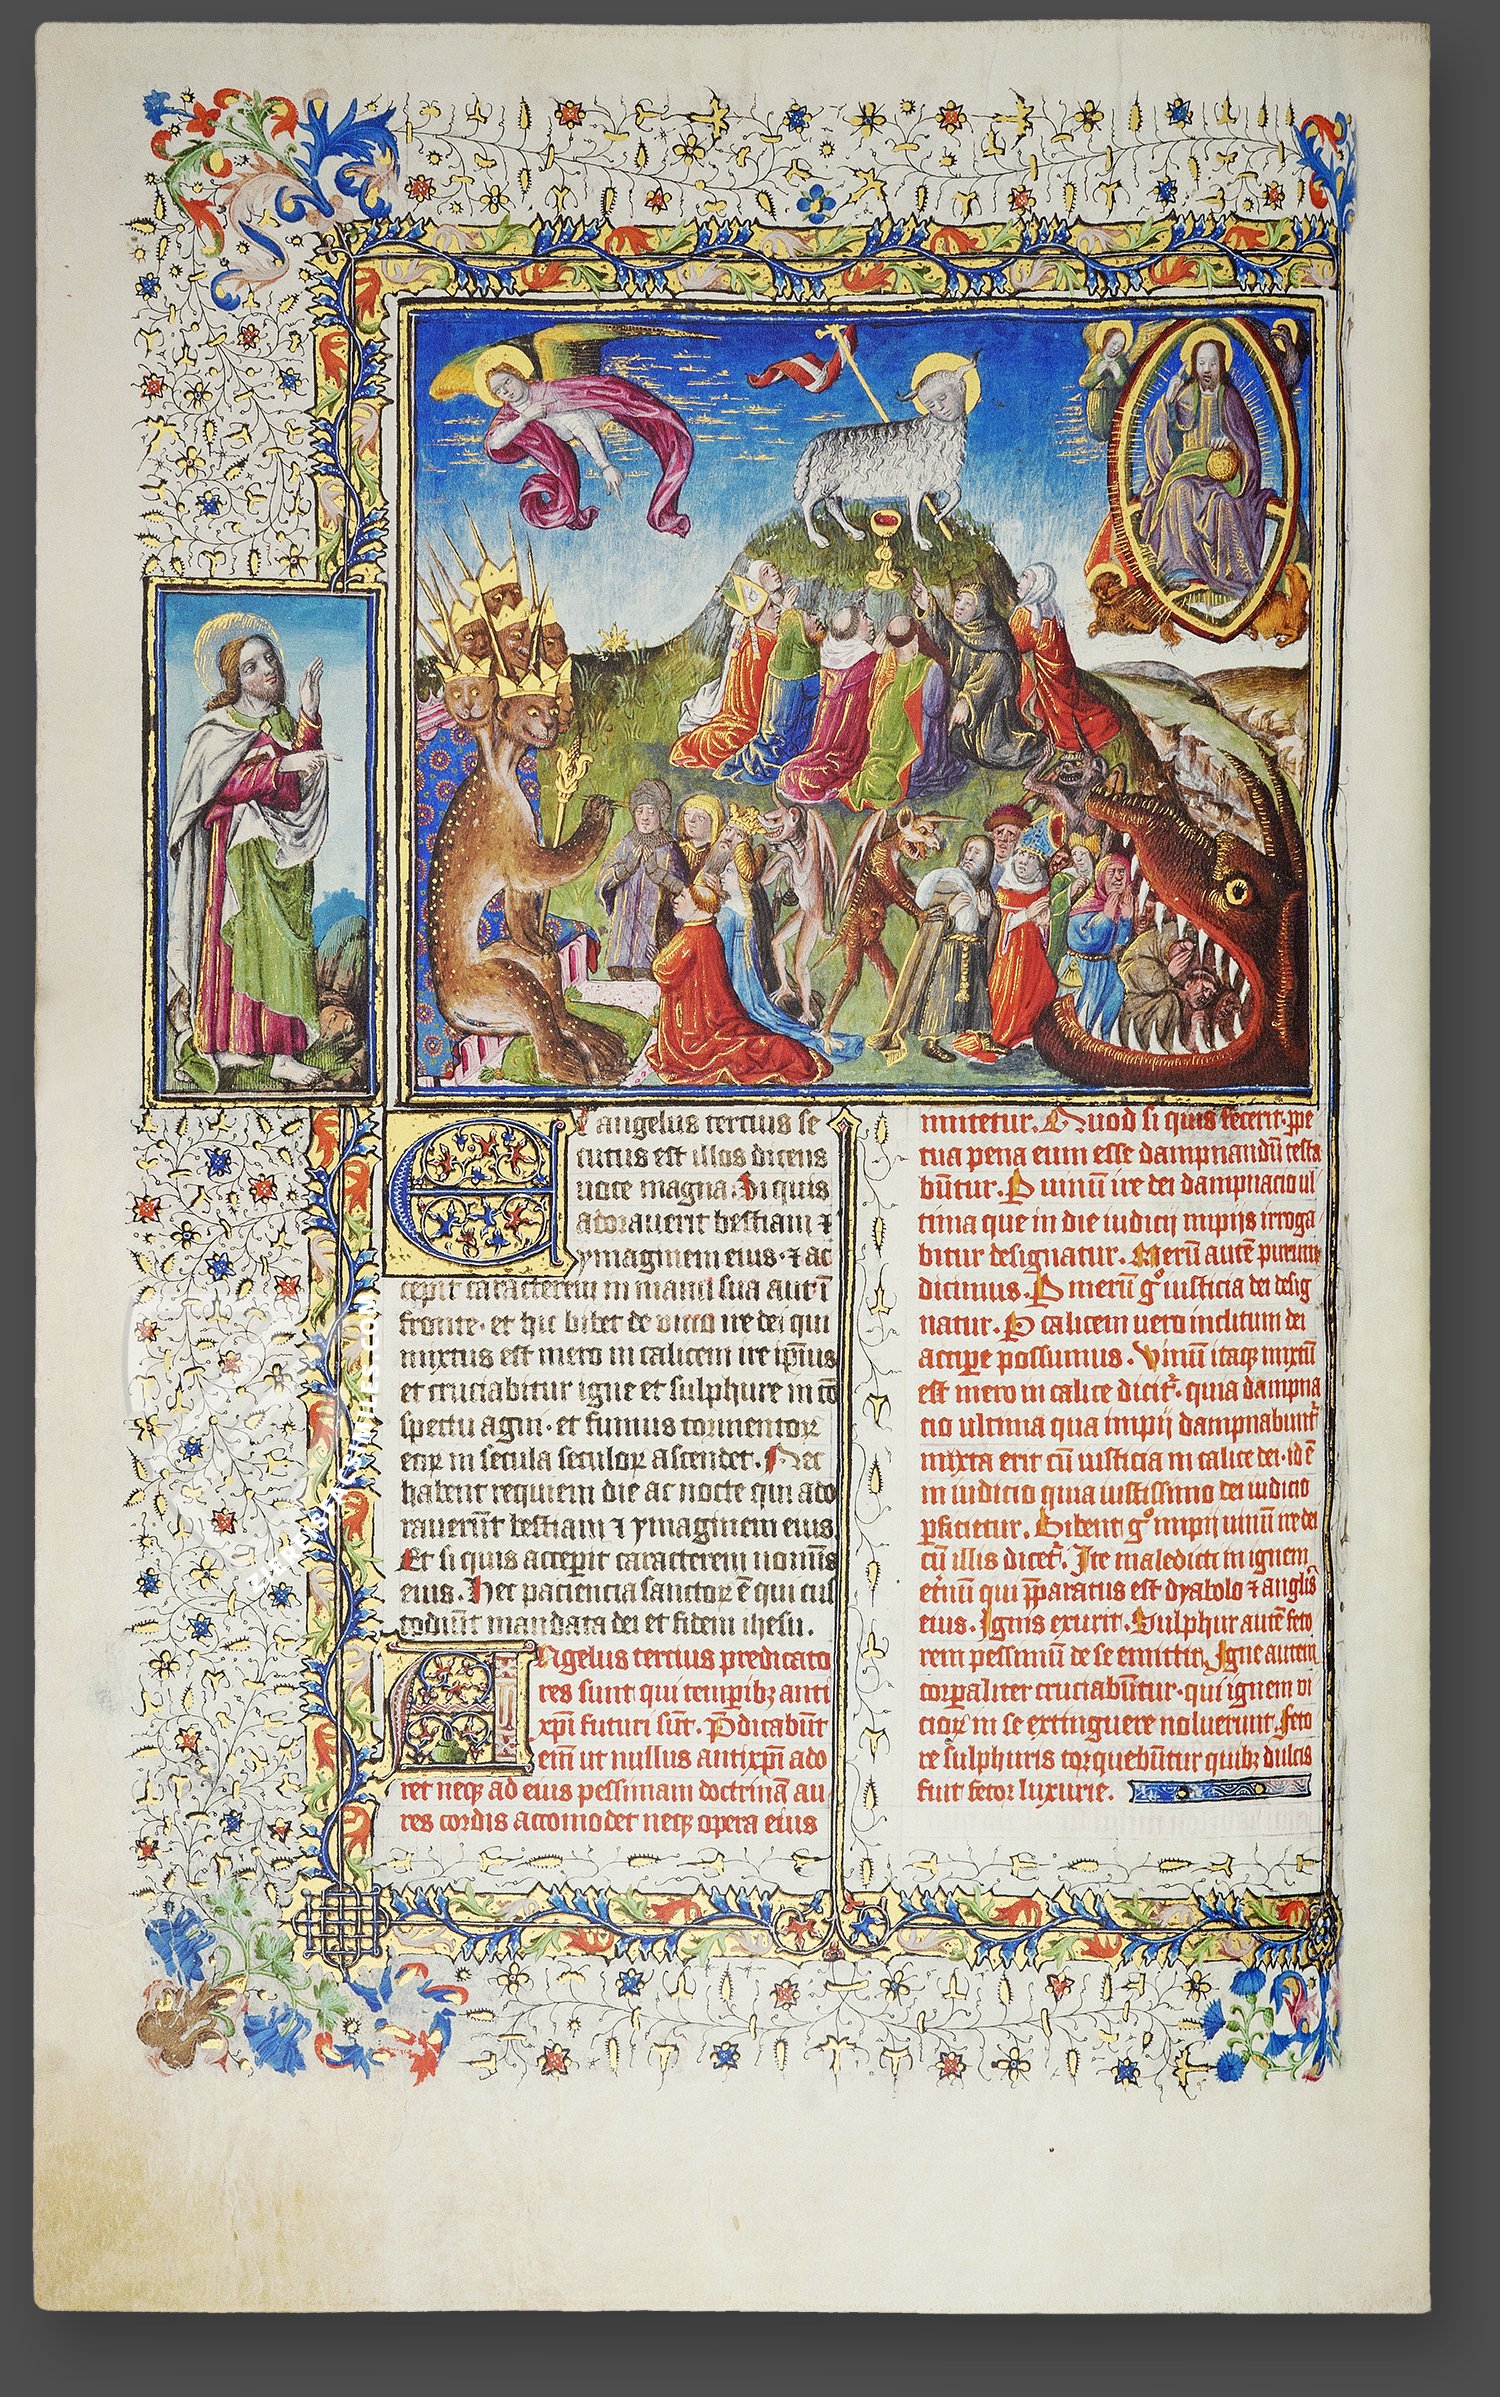 Et angelus tercius se
cutus est illos dicens
uoce magna. Si quis
adorauerit bestiam ⁊
ymaginem eius· ⁊ ac
ceperit caracterem in manu sua aut ĩ
fronte· et hic bibet de vino ire dei qui
mixtus est mero in calicem ire ipĩus
et cruciabitur igne et sulphure in cõ
spectu agni· et fumus tormentoꝝ
eoꝝ in secula seculoꝝ ascendet. Nec
habent requiem die ac nocte qui ado
rauerũt bestiam ⁊ ymaginem eius
Et si quis acceperit caracterem nominis
eius. Hec paciencia sanctoꝝ ẽ qui cus
todiũt mandata dei et fidem ihesu.
Angelus tercius predicato
res sunt qui temporibꝫ anti
xp̃i futuri sũt. P̃dicabũt
em̃ ut nullus antixp̃m ado
ret neqꝫ ad eius pessimam doctrinã au
res cordis accomodet neqꝫ opera eius
imitetur. Quod si quis fecerit· ꝑpe
tua pena eum esse dampnandũ testa
bũtur. Per uinũ ire dei dampnacio ul
tima que in die iudicij impijs irroga
bitur designatur. Merũ autẽ purum
dicimus. Per merũ gͦ iusticia dei desig
natur. Per calicem uero inclitum dei
accipere possumus. Vinũ itaqꝫ mixtũ
est mero in calice dicit᷑· quia dampna
cio ultima qua impij dampnabunt᷑
mixta erit cũ iusticia in calice dei· id ẽ
in iudicio quia iustissimo dei iudicio
ꝑficietur. Bibent gͦ impij uinũ ire dei
cũ illis dicet᷑. Ite maledicti in ignem
et᷑nũ qui p̃paratus est dyabolo ⁊ angl̃is
eius. Ignis exurit. Sulphur autẽ feto
rem pessimũ de se emittit. Igne autem
corꝑaliter cruciabũtur· qui ignem vi
cioꝝ in se extinguere noluerunt. Feto
re sulphuris torquebũtur quibꝫ dulcis
fuit fetor luxurie.